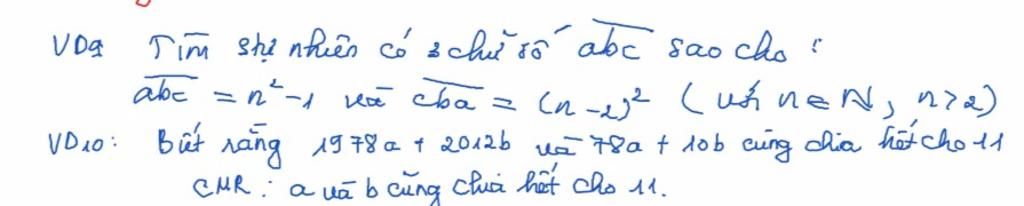 VD9 Tìm stự nhiên có 3 chữ số abc sao cho :
abc = n² - 1 và cba = (n - 2)² ( với n ∈ N, n > 2)
VD10: Biết rằng 1978a + 2012b và 78a + 10b cùng chia hết cho 11
CMR: a và b cũng chia hết cho 11.